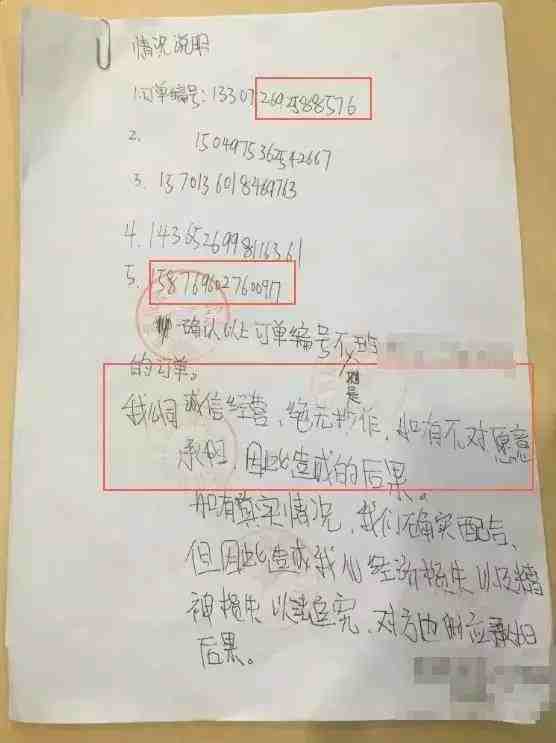 情况说明
1.订单编号:133072692588576
2. 1504975362542667
3. 1370136018469763
4. 1436526998116361
5. 158769602760097
确认以上订单编号不
的订单。
我公司诚信经营,绝无炒作,如有不对愿意
承担,因此造成的后果。
如有真实情况,我们确实配合、
但因此造成我们经济损失以及精
神损失以法追究,对方也侧应承担
后果。